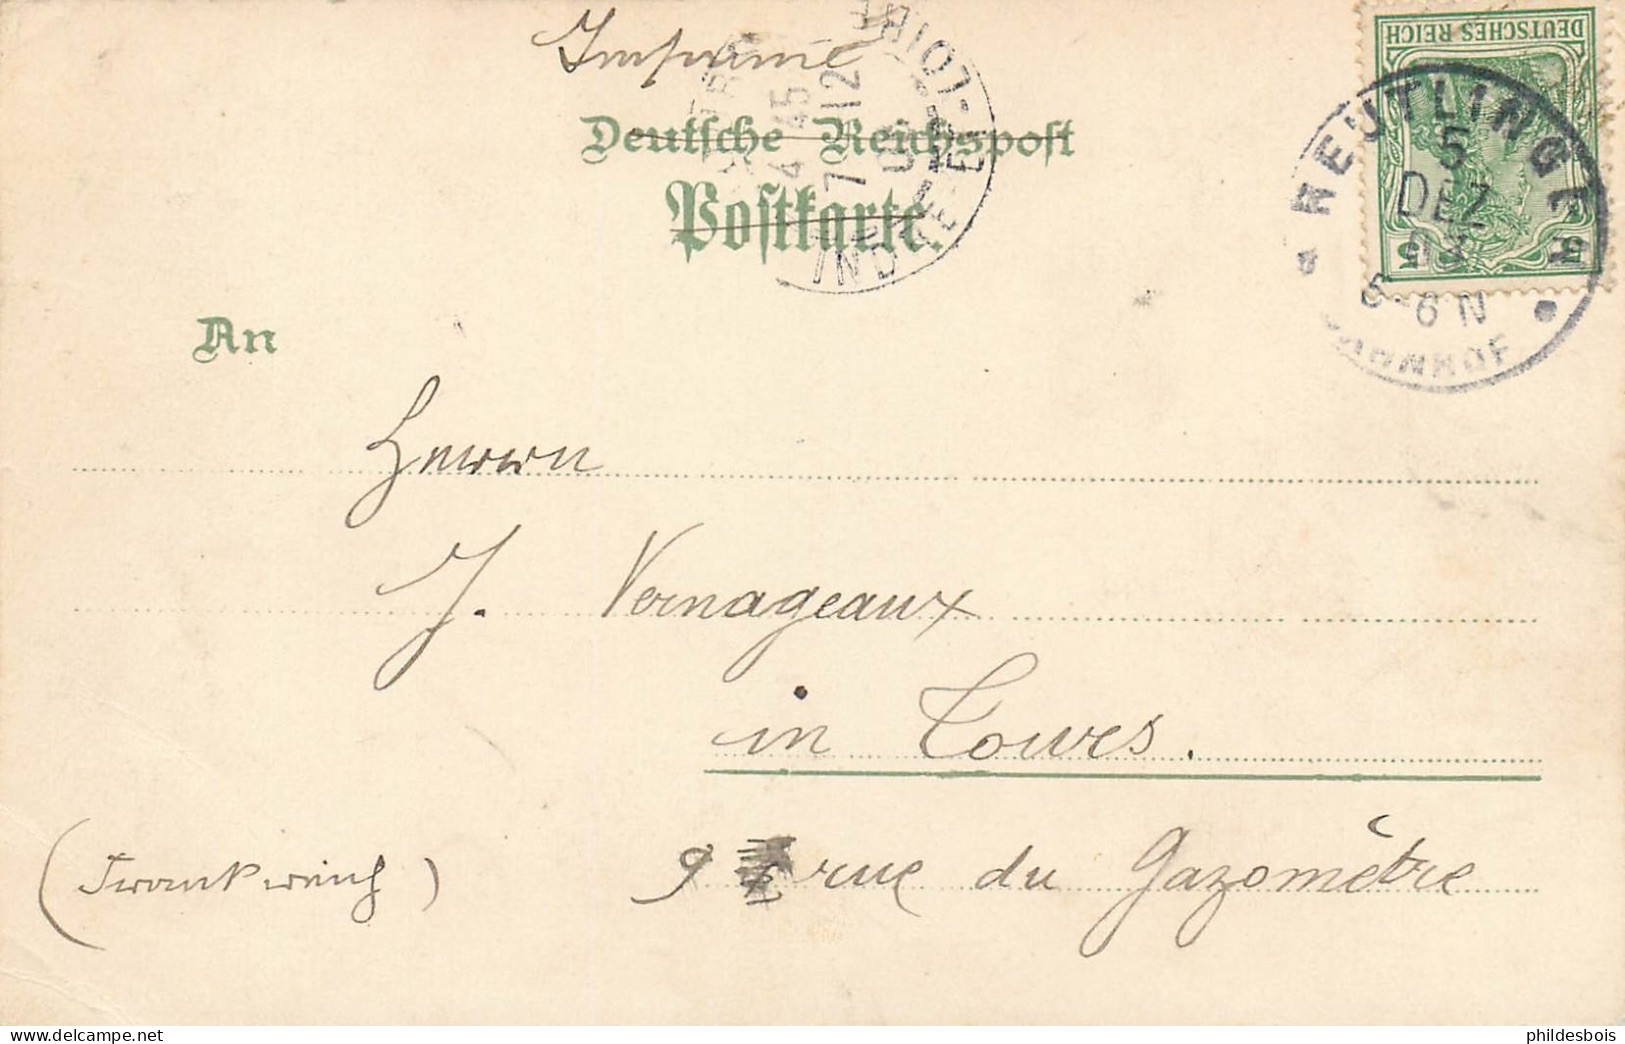 Imprimé
Deutsche Reichspost
Postkarte.
An
DEUTSCHES REICH
5 5
REUTLINGEN
5
DEZ
03
5-6N
BAHNHOF
4 45
7 12
03
INDRE-ET-LOIRE
Herrn
J. Vernageaux
in Tours.
9 rue du Gazomètre
(Frankreich)
www.delcampe.net
phildesbois